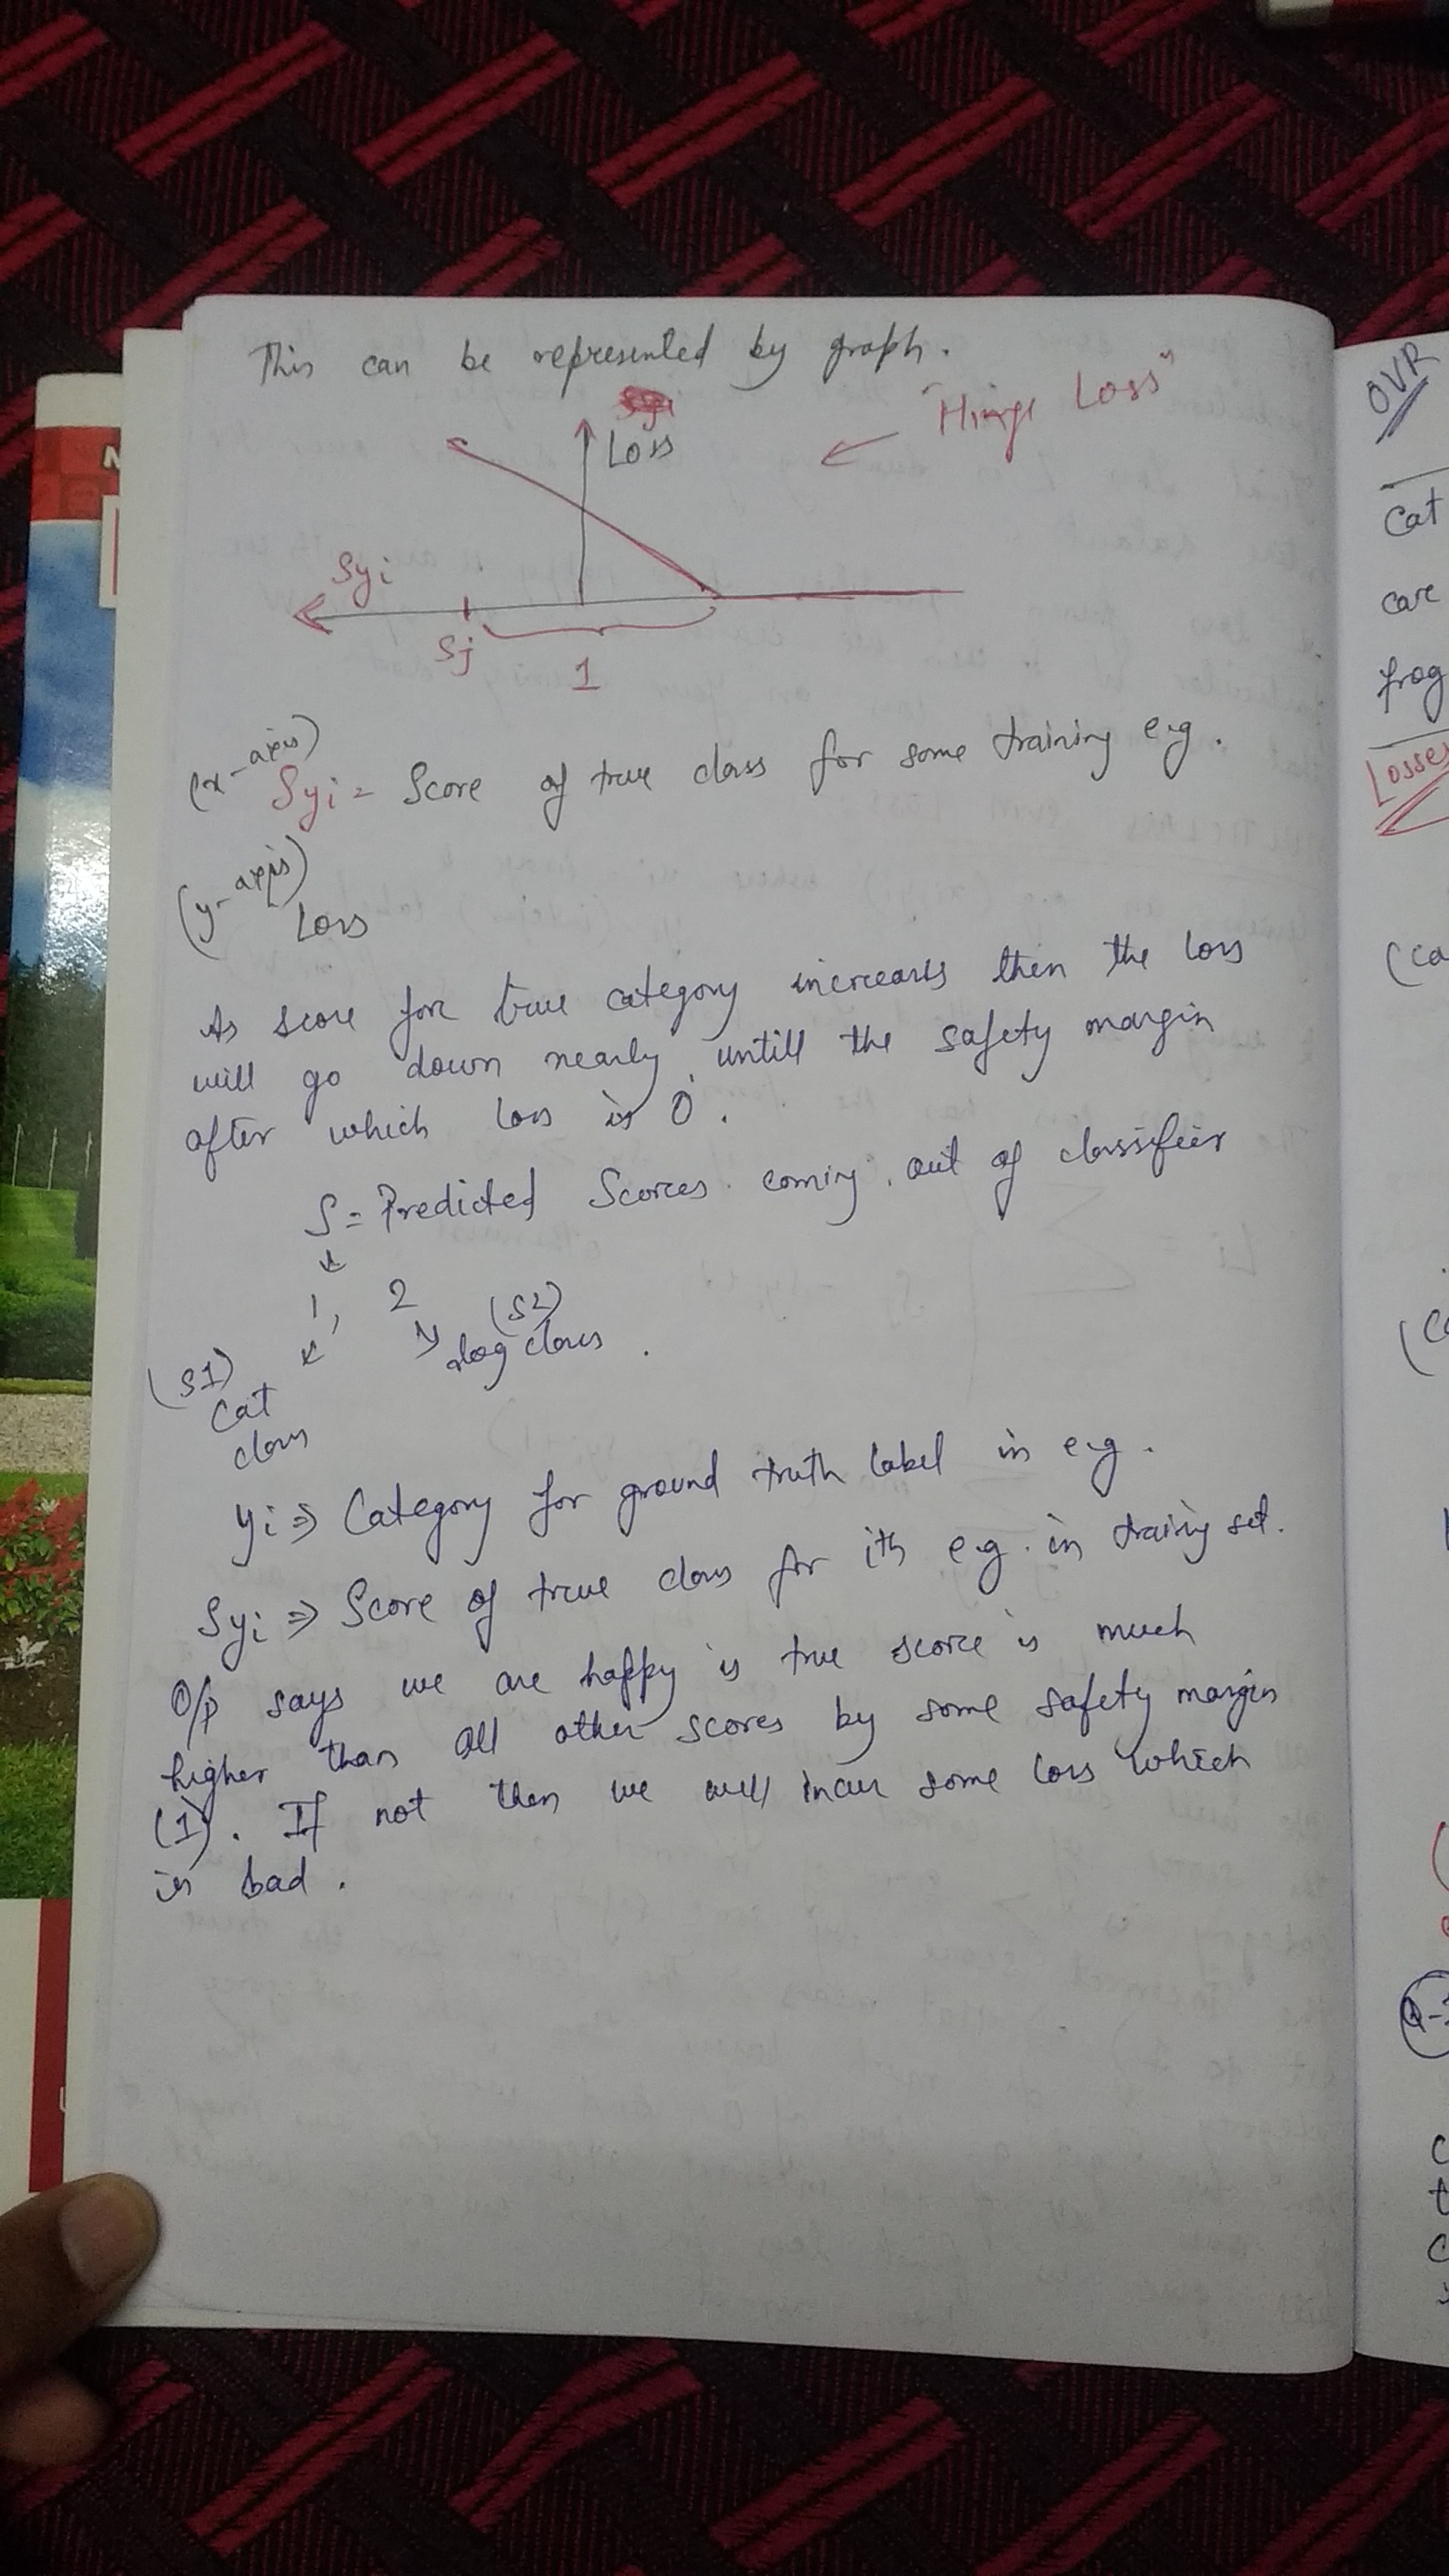 This can be represented by graph.
"Hinge Loss"
Loss
Syi
Sj
1
(x-axis)
Syi = Score of true class for some training e.g.
(y-axis)
Loss
As score for true category increases then the loss
will go down nearly untill the safety margin
after which loss is 0.
S = Predicted Scores coming out of classifier
1, 2
(S1) (S2)
cat dog class.
class
yi ⇒ Category for ground truth label in e.g.
Syi ⇒ Score of true class for ith e.g. in training set.
O/p says we are happy is true score is much
higher than all other scores by some safety margin
(1). If not then we will incur some loss which
is bad.
OVR
Cat
care
frog
Losses